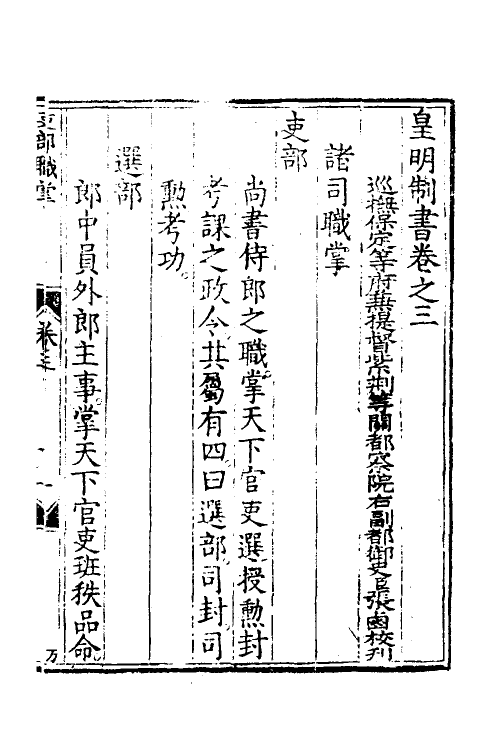 皇明制書卷之三
巡撫保定等府兼提督紫荊等關都察院右副都御史臣張鹵校刊
諸司職掌
吏部
尚書侍郎之職掌天下官吏選授勳封
考課之政令其屬有四曰選部司封司
勲考功
選部
郎中員外郎主事掌天下官吏班秩品命
吏部職掌
卷之三
一
万